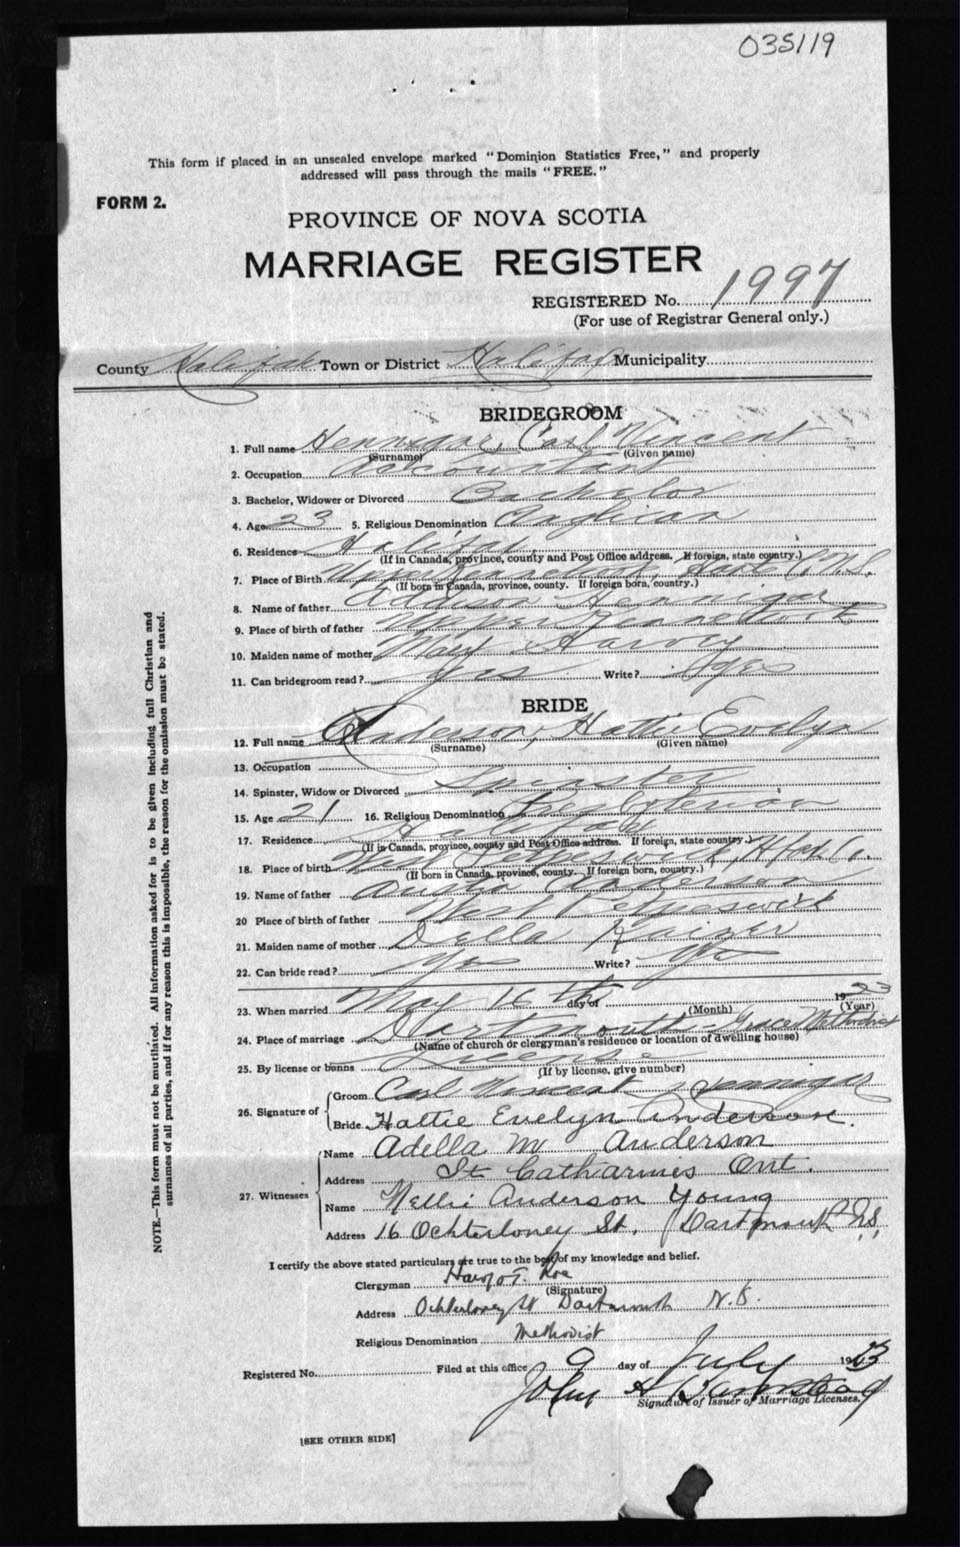 035119
This form if placed in an unsealed envelope marked "Dominion Statistics Free," and properly
addressed will pass through the mails "FREE."
FORM 2.
PROVINCE OF NOVA SCOTIA
MARRIAGE REGISTER
REGISTERED No. 1997
(For use of Registrar General only.)
County Halifax Town or District Halifax Municipality
BRIDEGROOM
1. Full name Hennigar, Carl Vincent
(Surname) (Given name)
2. Occupation Accountant
3. Bachelor, Widower or Divorced Bachelor
4. Age 23 5. Religious Denomination Anglican
6. Residence Halifax
(If in Canada, province, county and Post Office address. If foreign, state country.)
7. Place of Birth Upper Kennetcook, Hants Co. N.S.
(If born in Canada, province, county. If foreign born, country.)
8. Name of father Hennigar
9. Place of birth of father Upper Kennetcook
10. Maiden name of mother Mary Harvey
11. Can bridegroom read? Yes Write? Yes
BRIDE
12. Full name Anderson, Hattie Evelyn
(Surname) (Given name)
13. Occupation
14. Spinster, Widow or Divorced Spinster
15. Age 21 16. Religious Denomination Presbyterian
17. Residence Halifax
(If in Canada, province, county and Post Office address. If foreign, state country.)
18. Place of birth West Petpeswick, Hfax Co.
(If born in Canada, province, county. If foreign born, country.)
19. Name of father Austin Anderson
20 Place of birth of father West Petpeswick
21. Maiden name of mother Della Kaizer
22. Can bride read? Yes Write? Yes
23. When married May 16th day of (Month) 1923 (Year)
24. Place of marriage Dartmouth Grace Methodist
(Name of church or clergyman's residence or location of dwelling house)
25. By license or banns License
(If by license, give number)
26. Signature of Groom Carl Vincent Hennigar
Bride Hattie Evelyn Anderson.
27. Witnesses Name Adella M Anderson
Address St Catharines Ont.
Name Nellie Anderson Young
Address 16 Ochterloney St. Dartmouth N.S.
I certify the above stated particulars are true to the best of my knowledge and belief.
Clergyman Roe
(Signature)
Address Ochterloney St Dartmouth N.S.
Religious Denomination Methodist
Registered No. Filed at this office 9 day of July 1923
John A
Signature of Issuer of Marriage Licenses.
[SEE OTHER SIDE]
NOTE.—This form must not be mutilated. All information asked for is to be given including full Christian and
surnames of all parties, and if for any reason this is impossible, the reason for the omission must be stated.